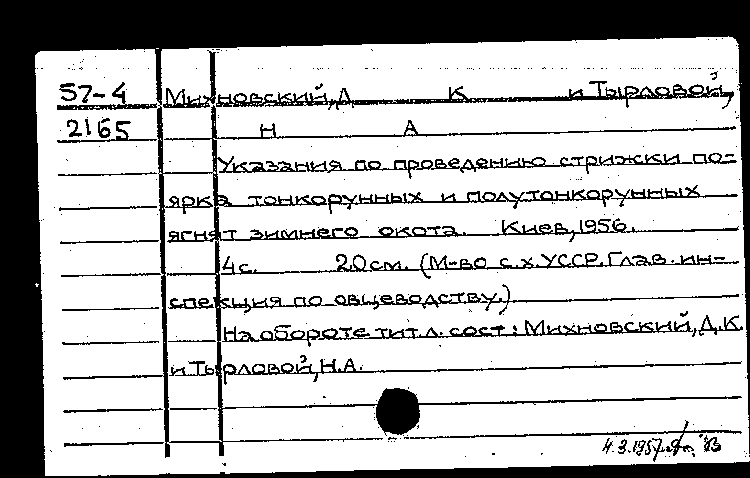 57-4 Михновский, Д К и Тырловой,
2165 Н А
Указания по проведению стрижки по=
ярка тонкорунных и полутонкорунных
ягнят зимнего окота. Киев, 1956.
4с. 20см. (М-во с.х.УССР. Глав. ин-
спекция по овцеводству.)
На обороте тит.л. сост: Михновский, Д.К.
и Тырловой, Н.А.
4.3.1957